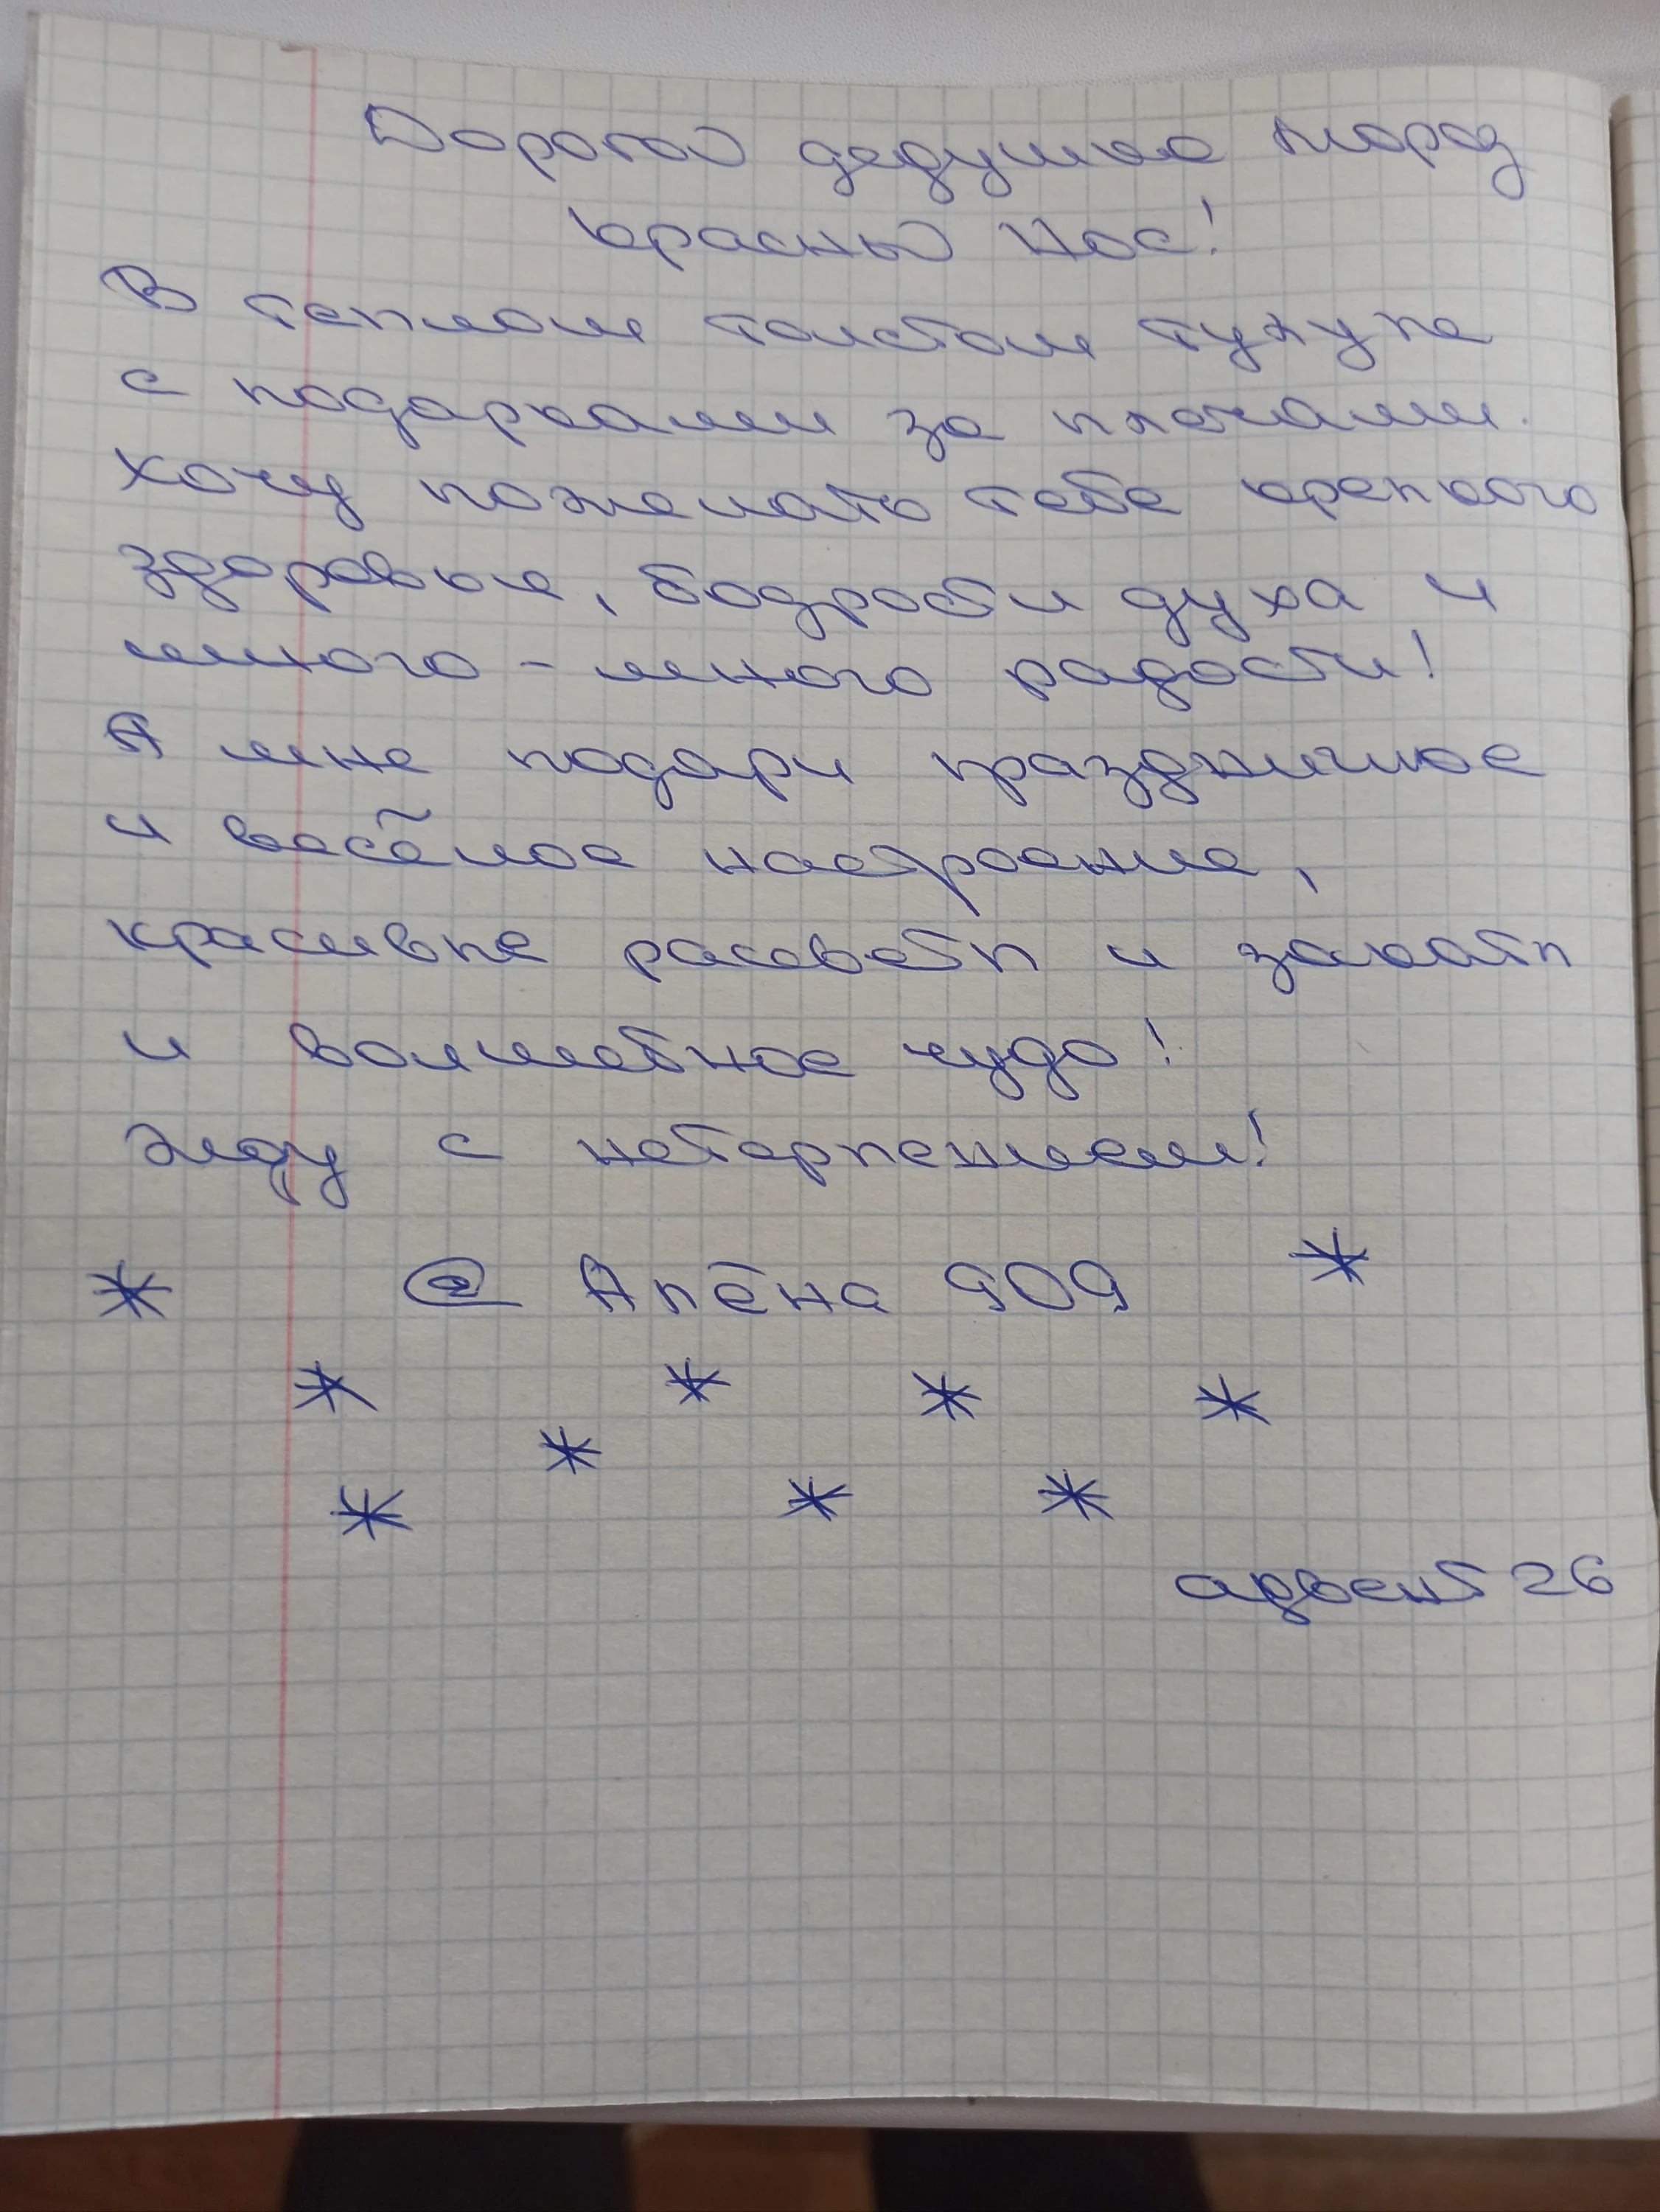 Дорогой дедушка мороз
красный нос!
В теплом толстом тулупе
с подарками за плечами.
Хочу пожелать тебе крепкого
здоровья, бодрости духа и
много - много радости!
А мне подари праздничное
и весёлое настроение,
красивые рассветы и закаты
и волшебное чудо!
Жду с нетерпением!
* @ Алёна 909 *
* * * *
*
* * *
адвент 26